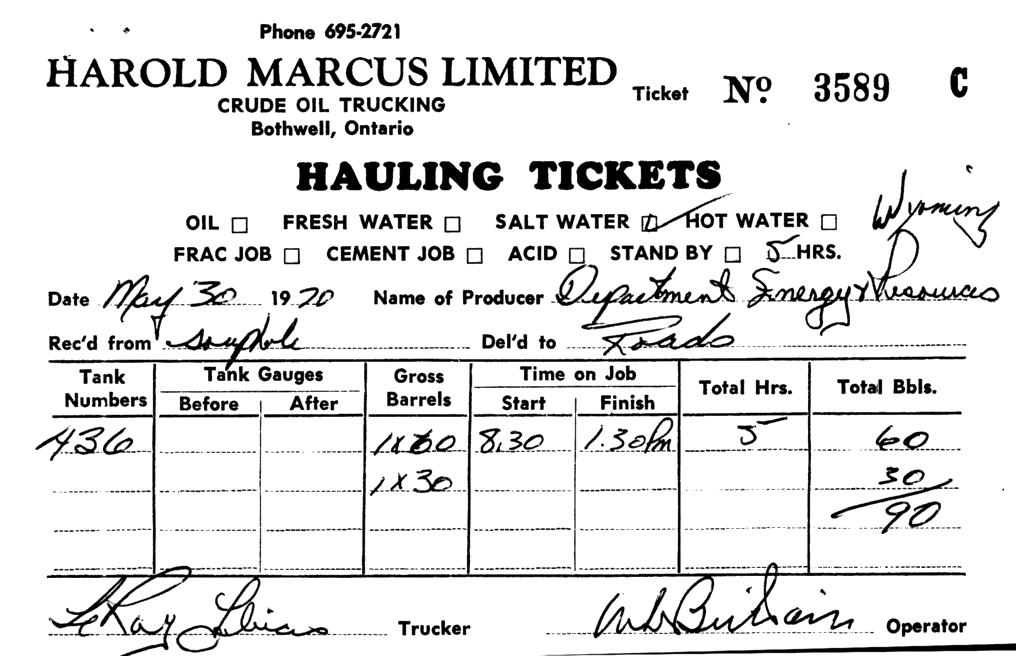 Phone 695-2721
HAROLD MARCUS LIMITED
CRUDE OIL TRUCKING
Bothwell, Ontario
Ticket Nº 3589 C
HAULING TICKETS
Wyoming
OIL ☐ FRESH WATER ☐ SALT WATER ☑ HOT WATER ☐
FRAC JOB ☐ CEMENT JOB ☐ ACID ☐ STAND BY ☐ 5 HRS.
Date May 30 1970 Name of Producer Department Energy & Resources
Rec'd from Del'd to Roads
Tank Numbers Tank Gauges Before After Gross Barrels Time on Job Start Finish Total Hrs. Total Bbls.
436 1x60 8.30 1.30 Pm 5 60
1 x 30 30
90
LeRoy Trucker Operator